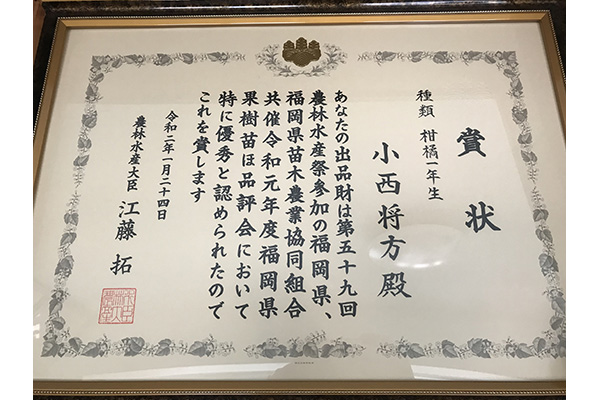 賞状
種類 柑橘一年生
小西将方殿
あなたの出品財は第五十九回
農林水産祭参加の福岡県、
福岡県苗木農業協同組合
共催令和元年度福岡県
果樹苗ほ品評会において
特に優秀と認められたので
これを賞します
令和二年一月二十四日
農林水産大臣 江藤 拓